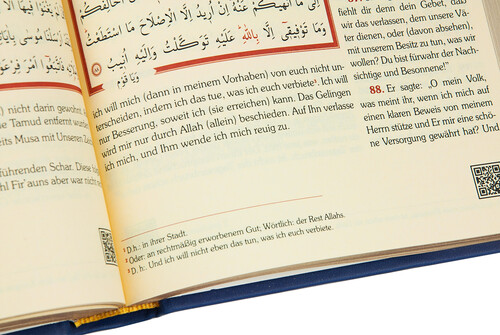 إِلَىٰ مَا أَنْهَىٰكُمْ عَنْهُ إِنْ أُرِيدُ إِلَّا الْإِصْلَاحَ مَا اسْتَطَعْتُ
وَمَا تَوْفِيقِي إِلَّا بِاللَّهِ عَلَيْهِ تَوَكَّلْتُ وَإِلَيْهِ أُنِيبُ
وَيَا قَوْمِ
Ich will mich (dann in meinem Vorhaben) von euch nicht un-
terscheiden, indem ich das tue, was ich euch verbiete³. Ich will
nur Besserung, soweit ich (sie erreichen) kann. Das Gelingen
wird mir nur durch Allah (allein) beschieden. Auf Ihn verlasse
ich mich, und Ihm wende ich mich reuig zu.
fiehlt dir denn dein Gebet, daß
wir das verlassen, dem unsere Vä-
ter dienen, oder (davon absehen),
mit unserem Besitz zu tun, was wir
wollen? Du bist fürwahr der Nach-
sichtige und Besonnene!"
88. Er sagte: „O mein Volk,
was meint ihr, wenn ich mich auf
einen klaren Beweis von meinem
Herrn stütze und Er mir eine schö-
ne Versorgung gewährt hat? Und
) nicht darin gewohnt
e Tamud entfernt wurden
reits Musa mit Unseren Zei
führenden Schar. Diese
hl Fir'auns aber war nicht
¹ D.h., in ihrer Stadt.
² Oder: an rechtmäßig erworbenem Gut; Wörtlich: der Rest Allahs.
³ D. h.: Und ich will nicht eben das tun, was ich euch verbiete.